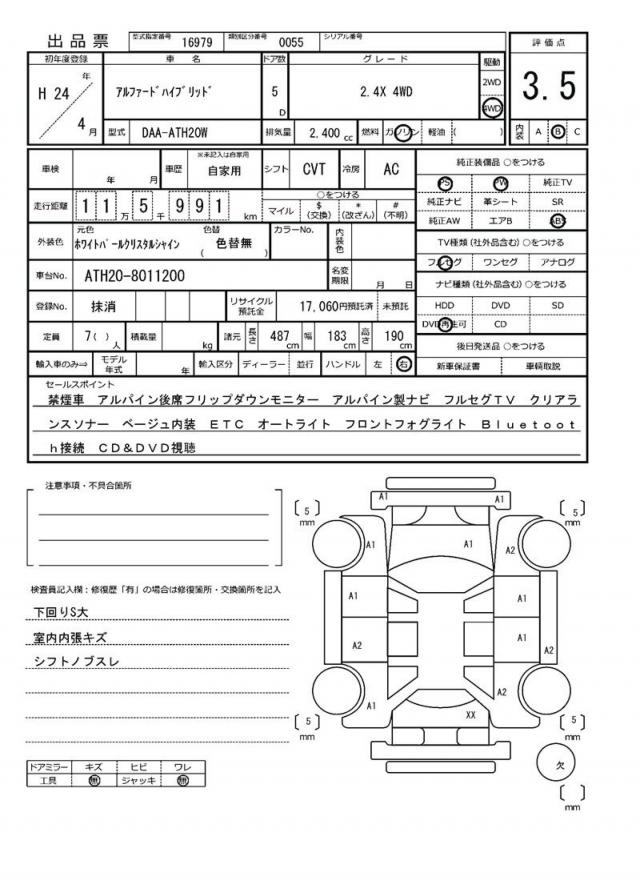 出品票 型式指定番号 16979 類別区分番号 0055 シリアル番号
評価点
3.5
初年度登録 車名 ドア数 グレード 駆動
H 24 年 4 月
アルファードハイブリッド
5 D
2.4X 4WD
2WD
4WD
型式 DAA-ATH20W 排気量 2,400 cc 燃料 ガソリン 軽油 ( )
内装 A B C
車検 年 月 車歴 ※未記入は自家用 自家用 シフト CVT 冷房 AC
走行距離 1 1 万 5 千 9 9 1 km
○をつける
マイル $(交換) *(改ざん) #(不明)
外装色 元色 ホワイトパールクリスタルシャイン 色替 ( 色替無 ) カラーNo. 内装色
車台No. ATH20-8011200 名変期限 月 日
登録No. 抹消 リサイクル預託金 17,060円預託済 未預託
定員 7( ) 人 積載量 kg 諸元 長さ 487 cm 幅 183 cm 高さ 190 cm
輸入車のみ⇒ モデル年式 年 輸入区分 ディーラー 並行 ハンドル 左 右
純正装備品 ○をつける
PS PW 純正TV
純正ナビ 革シート SR
純正AW エアB ABS
TV種類(社外品含む) ○をつける
フルセグ ワンセグ アナログ
ナビ種類(社外品含む) ○をつける
HDD DVD SD
DVD再生可 CD
後日発送品 ○をつける
新車保証書 車輌取説
セールスポイント
禁煙車 アルパイン後席フリップダウンモニター アルパイン製ナビ フルセグTV クリアラ
ンスソナー ベージュ内装 ETC オートライト フロントフォグライト Bluetoot
h接続 CD&DVD視聴
注意事項・不具合箇所
検査員記入欄:修復歴「有」の場合は修復箇所・交換箇所を記入
下回りS大
室内内張キズ
シフトノブスレ
ドアミラー キズ ヒビ ワレ
工具 無 ジャッキ 無
A1 A1
[ 5 ] mm
[ 5 ] mm
A1 A1 A2
A1 A1
A2 A1 A2
A1 XX A2
[ 5 ] mm
[ 5 ] mm
欠
[ ] mm